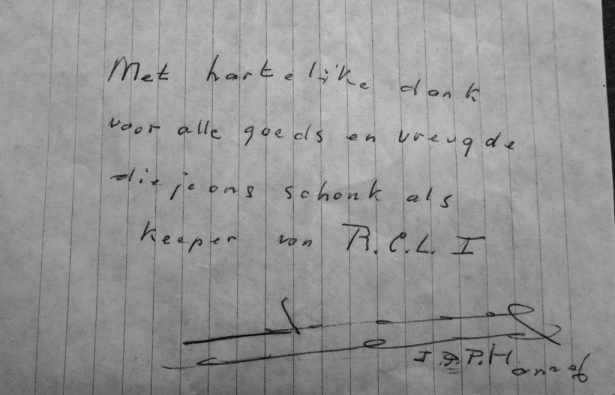 Met hartelijke dank
voor alle goeds en vreugde
die je ons schonk als
keeper van R.C.L. I